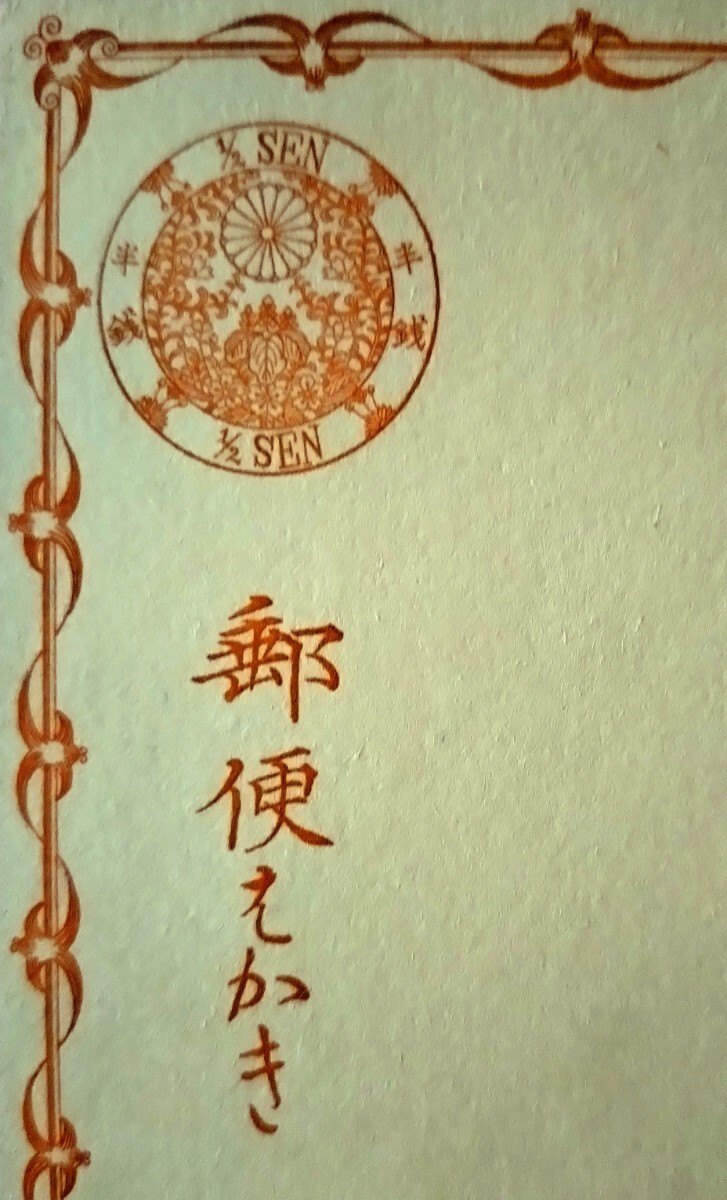 ½ SEN
半銭
半銭
½ SEN
郵便はかき